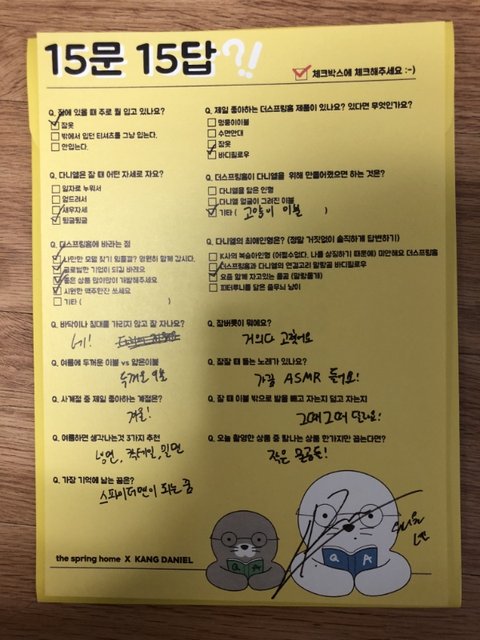 15문 15답?!
체크박스에 체크해주세요 :-)
Q. 집에 있을 때 주로 뭘 입고 있나요?
잠옷
밖에서 입던 티셔츠를 그냥 입는다.
안입는다.
Q. 다니엘은 잘 때 어떤 자세로 자요?
일자로 누워서
엎드려서
새우자세
뒹굴뒹굴
Q. 더스프링홈에 바라는 점
시안만 모델 찾기 있을걸? 영원히 함께 갑시다.
글로벌한 기업이 되길 바래요
좋은 상품 많이많이 개발해주세요
시원한 맥주한잔 쏘세요
기타 ( )
Q. 바닥이나 침대를 가리지 않고 잘 자나요?
네!
Q. 여름에 두꺼운 이불 vs 얇은이불
두꺼운 이불
Q. 사계절 중 제일 좋아하는 계절은?
겨울!
Q. 여름하면 생각나는것 3가지 추천
냉면, 밀면
Q. 가장 기억에 남는 꿈은?
스파이더맨이 되는 꿈
Q. 제일 좋아하는 더스프링홈 제품이 있나요? 있다면 무엇인가요?
멍뭉이이불
수면안대
잠옷
바디필로우
Q. 더스프링홈이 다니엘을 위해 만들어줬으면 하는 것은?
다니엘을 닮은 인형
다니엘 얼굴이 그려진 이불
기타 ( 고양이 이불 )
Q. 다니엘의 최애인형은? (정말 거짓없이 솔직하게 답변하기)
K사의 복숭아인형 (어쩔수없다. 나를 상징하기 때문에) 미안해요 더스프링홈
더스프링홈과 다니엘의 연결고리 말랑곰 바디필로우
요즘 함께 자고있는 물곰 (말랑물개)
피터루니를 닮은 솜뭉니 냥이
Q. 잠버릇이 뭐에요?
거의다 고쳤어요
Q. 잠잘 때 듣는 노래가 있나요?
가끔 ASMR 들어요!
Q. 잘 때 이불 밖으로 발을 빼고 자는지 덮고 자는지
그때그때 달라요!
Q. 오늘 촬영한 상품 중 탐나는 상품 한가지만 꼽는다면?
작은 물곰돌!
Q A
Q A
the spring home X KANG DANIEL